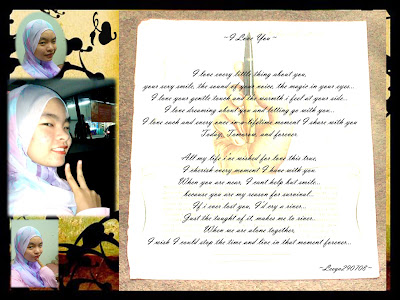 ~I Love You~
I love every little thing about you,
your sexy smile, the sound of your voice, the magic in your eyes...
I love your gentle touch and the warmth i feel at your side...
I love dreaming about you and letting go with you...
I love each and every once in a lifetime moment I share with you
Today, Tomorow, and forever
All my life i've wished for love this true,
I cherish every moment I have with you.
When you are near, I cant help but smile...
because you are my reason for survival...
If i ever lost you, I'd cry a river...
Just the taught of it, makes me to river...
When we are alone together,
I wish I could stop the time and live in that moment forever...